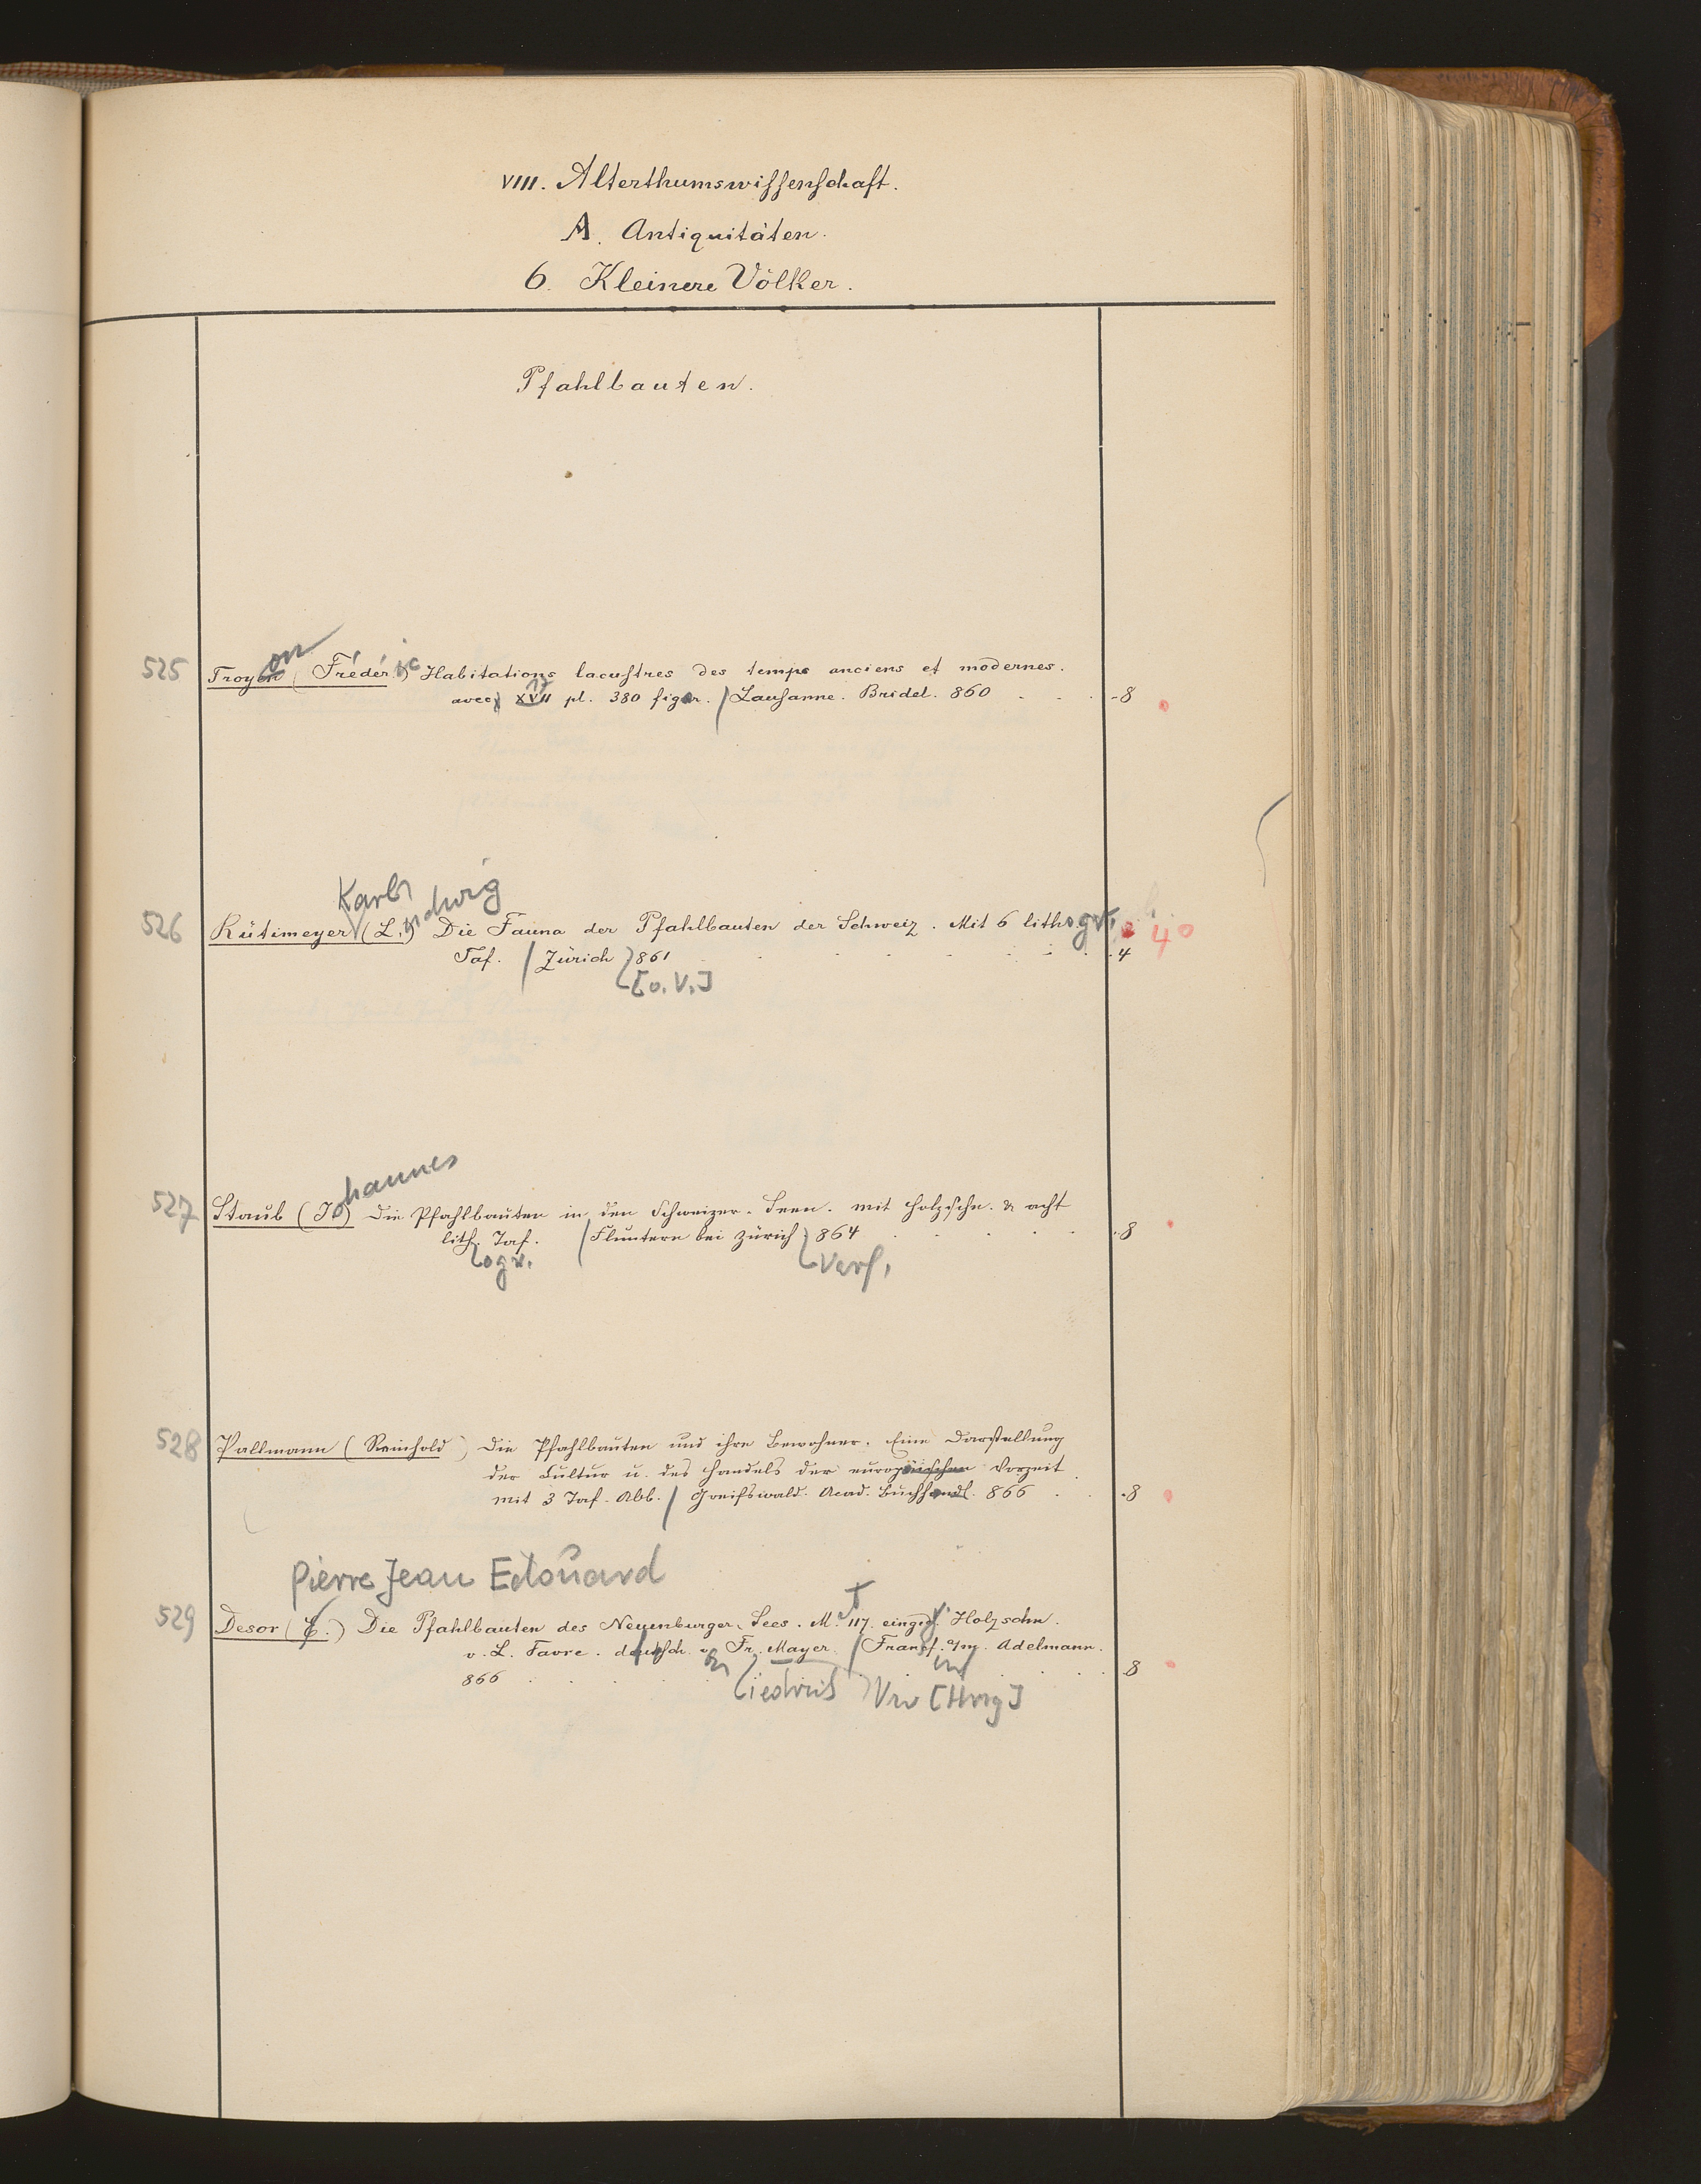 VIII. Alterthumswissenschaft.
A. Antiquitäten.
6. Kleinere Völker.
Pfahlbauten.
on
525 Troyon (Fréderic) Habitations lacustres des temps anciens et modernes.
17
avec XVII pl. 380 figur. / Lausanne. Bridel. 860 - 8
Karl
udwig
526 Rütimeyer (L.) Die Fauna der Pfahlbauten der Schweiz. Mit 6 lithogr. 4°
Taf. / Zürich 861 4
[o. V.]
hannes
527 Staub (Jo) Die Pfahlbauten in den Schweizer-Seen. mit Holzschn. & acht
lith. Taf. / Fluntern bei Zürich 864 8
ogr. Verf.
528 Pallmann (Reinhold) Die Pfahlbauten und ihre Bewohner. Eine Darstellung
der Cultur u. des Handels der europäischen Vorzeit
mit 3 Taf. Abb. / Greifswald. Acad. Buchhandl. 866 8
Pierre Jean Edouard
529 Desor (E.) Die Pfahlbauten des Neuenburger Sees. M. 117. eingedr. Holzschn.
v. L. Favre. deutsch v. Fr. Mayer / Franff. a/m. Adelmann.
866 8
iedrich [Hrsg]